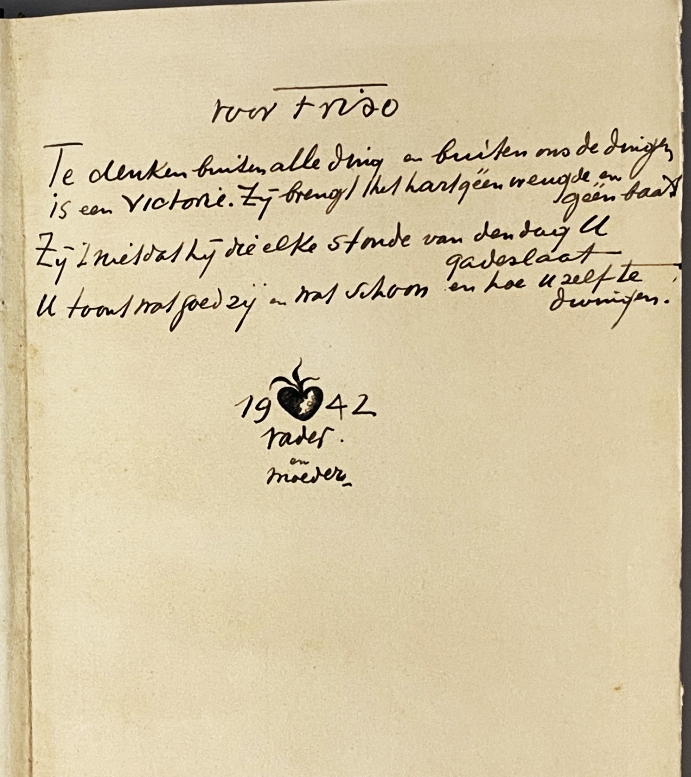 voor Friso
Te denken buiten alle ding en buiten ons de dingen
is een victorie. Zij brengt het hart geen vreugde en
geen baat
Zij 't niet dat hij die elke stonde van den dag U
gadeslaat
U toont wat goed zij en wat schoon en hoe u zelf te
dwingen.
19 42
vader.
en
moeder